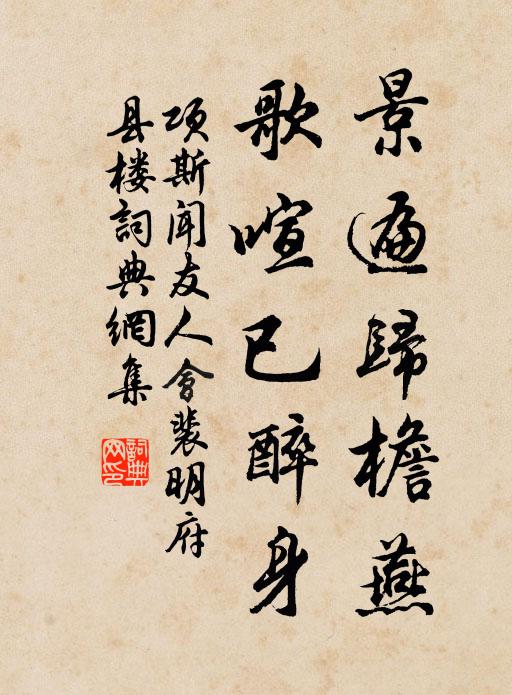 景遍歸檐燕
歌喧已醉身
项斯聞友人會裴明府
县楼詞典網集
詞典网印